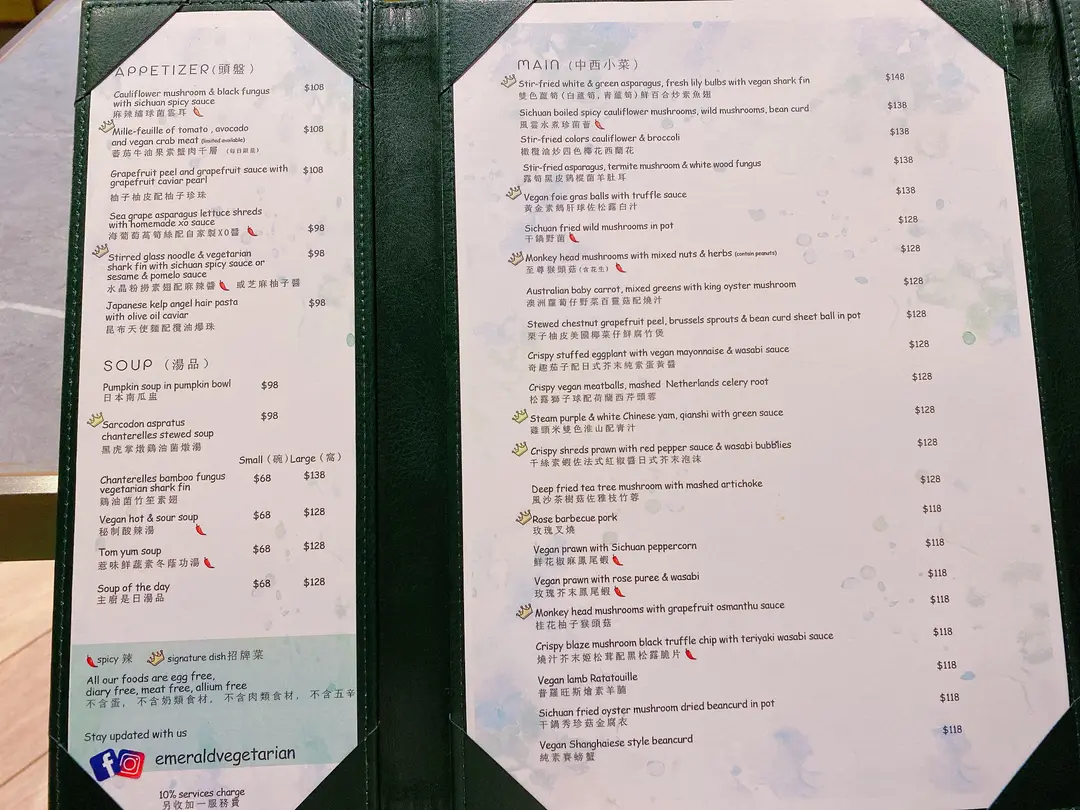 APPETIZER(頭盤)
Cauliflower mushroom & black fungus
with sichuan spicy sauce
$108
麻辣繡球菌雲耳
Mille-feuille of tomato , avocado
and vegan crab meat (limited available)
$108
蕃茄牛油果素蟹肉千層 (每日限量)
Grapefruit peel and grapefruit sauce with
grapefruit caviar pearl
$108
柚子柚皮配柚子珍珠
Sea grape asparagus lettuce shreds
with homemade xo sauce
$98
海葡萄萵筍絲配自家製XO醬
Stirred glass noodle & vegetarian
shark fin with sichuan spicy sauce or
sesame & pomelo sauce
$98
水晶粉撈素翅配麻辣醬 或芝麻柚子醬
Japanese kelp angel hair pasta
with olive oil caviar
$98
昆布天使麵配欖油爆珠
SOUP (湯品)
Pumpkin soup in pumpkin bowl $98
日本南瓜盅
$98
Sarcodon aspratus
chanterelles stewed soup
黑虎掌燉鷄油菌燉湯
Small (碗) Large (窩)
Chanterelles bamboo fungus
vegetarian shark fin
$68 $138
鷄油菌竹笙素翅
Vegan hot & sour soup $68 $128
秘制酸辣湯
Tom yum soup $68 $128
惹味鮮蔬素冬蔭功湯
Soup of the day $68 $128
主廚是日湯品
spicy 辣 signature dish招牌菜
All our foods are egg free,
diary free, meat free, allium free
不含蛋, 不含奶類食材, 不含肉類食材, 不含五辛
Stay updated with us
emeraldvegetarian
10% services charge
另收加一服務費
MAIN (中西小菜)
Stir-fried white & green asparagus, fresh lily bulbs with vegan shark fin $148
雙色蘆筍(白蘆筍,青蘆筍)鮮百合炒素魚翅
Sichuan boiled spicy cauliflower mushrooms, wild mushrooms, bean curd $138
風雲水煮珍菌薈
Stir-fried colors cauliflower & broccoli $138
橄欖油炒四色椰花西蘭花
Stir-fried asparagus, termite mushroom & white wood fungus $138
露筍黑皮鷄樅菌羊肚耳
Vegan foie gras balls with truffle sauce $138
黃金素鵝肝球佐松露白汁
Sichuan fried wild mushrooms in pot $128
干鍋野菌
Monkey head mushrooms with mixed nuts & herbs (contain peanuts) $128
至尊猴頭菇(含花生)
Australian baby carrot, mixed greens with king oyster mushroom $128
澳洲蘿蔔仔野菜百靈菇配燒汁
Stewed chestnut grapefruit peel, brussels sprouts & bean curd sheet ball in pot $128
栗子柚皮美國椰菜仔鮮腐竹煲
Crispy stuffed eggplant with vegan mayonnaise & wasabi sauce $128
奇趣茄子配日式芥末純素蛋黃醬
Crispy vegan meatballs, mashed Netherlands celery root $128
松露獅子球配荷蘭西芹頭蓉
Steam purple & white Chinese yam, qianshi with green sauce $128
雞頭米雙色淮山配青汁
Crispy shreds prawn with red pepper sauce & wasabi bubblies $128
千絲素蝦佐法式紅椒醬日式芥末泡沫
Deep fried tea tree mushroom with mashed artichoke $128
風沙茶樹菇佐雅枝竹蓉
Rose barbecue pork $118
玫瑰叉燒
Vegan prawn with Sichuan peppercorn $118
鮮花椒麻鳳尾蝦
Vegan prawn with rose puree & wasabi $118
玫瑰芥末鳳尾蝦
Monkey head mushrooms with grapefruit osmanthu sauce $118
桂花柚子猴頭菇
Crispy blaze mushroom black truffle chip with teriyaki wasabi sauce $118
燒汁芥末姬松茸配黑松露脆片
Vegan lamb Ratatouille $118
普羅旺斯燴素羊腩
Sichuan fried oyster mushroom dried beancurd in pot $118
干鍋秀珍菇金腐衣
Vegan Shanghaiese style beancurd $118
純素賽螃蟹